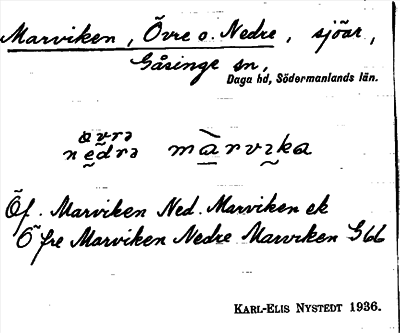 Marviken, Övre o. Nedre, sjöar,
Gåsinge sn,
Daga hd, Södermanlands län.
øvrə
nedrə màrvika
Öf. Marviken Ned. Marviken ek
Öfre Marviken Nedre Marviken G66
KARL-ELIS NYSTEDT 1936.